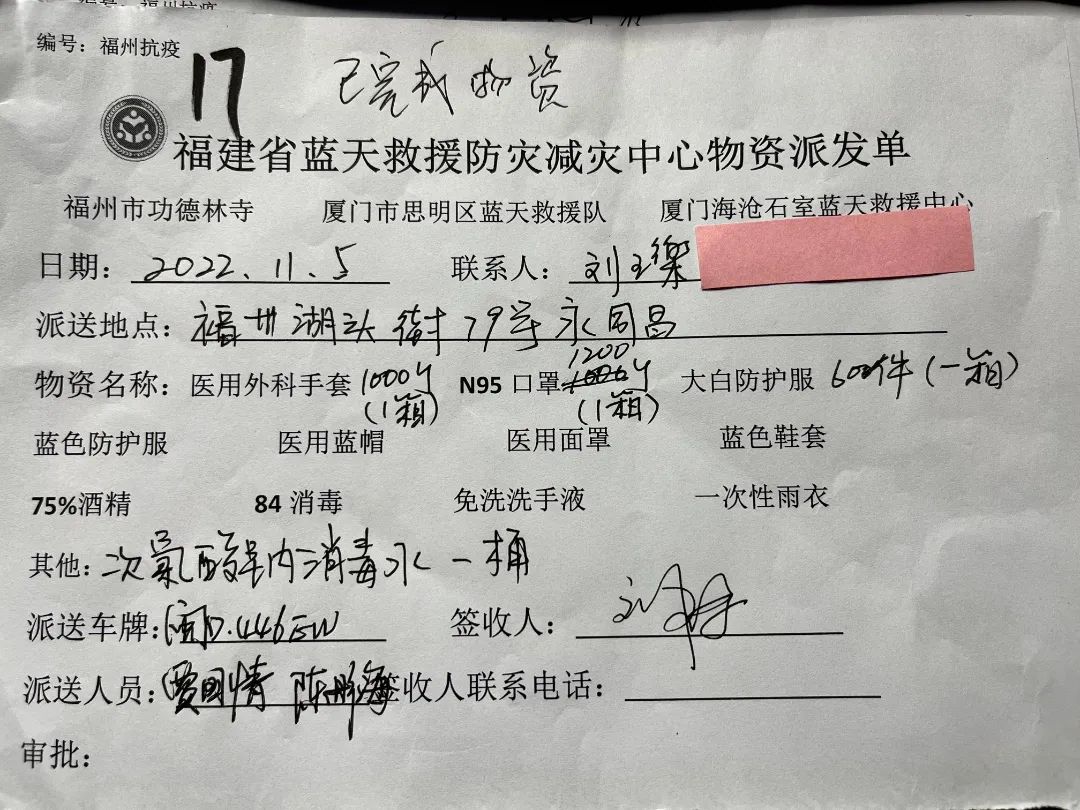 编号：福州抗疫
17 已完成物资
福建省蓝天救援防灾减灾中心物资派发单
福州市功德林寺 厦门市思明区蓝天救援队 厦门海沧石室蓝天救援中心
日期：2022.11.5 联系人：刘玉
派送地点：福州湖头街79号永同昌
1200
物资名称：医用外科手套 1000个 N95口罩 个 大白防护服 600件（一箱）
（1箱） （1箱）
蓝色防护服 医用蓝帽 医用面罩 蓝色鞋套
75%酒精 84消毒 免洗洗手液 一次性雨衣
其他：次氯酸钠消毒水一桶
派送车牌：闽D.446EW 签收人：刘
派送人员：贾国情 陈鹏海 签收人联系电话：
审批：